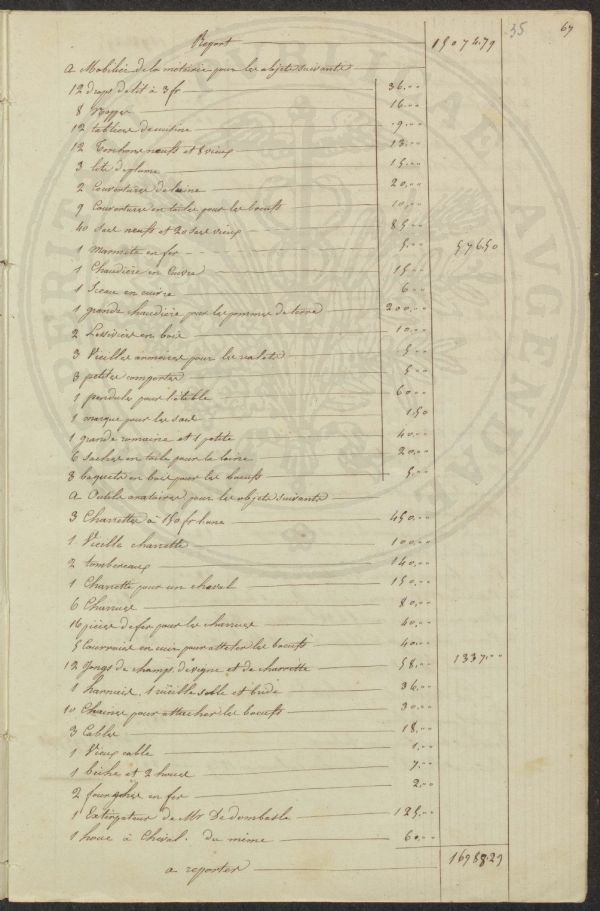 35 67
Report 15074.79
a Mobilier de la métairie pour les objets suivants
12 draps de lit à 3 fr 36.00
8 Nappes 16.00
12 tabliers de cuisine 9.00
12 Torchons neufs et 8 vieux 13.00
3 lits de plume 15.00
2 Couvertures de laine 20.00
9 Couvertures en toile pour les boeufs 10.00
40 Sacs neufs et 20 sacs vieux 85.00
1 Marmite en fer 5.00 576.50
1 Chaudière en Cuivre 15.00
1 Sceau en cuivre 6.00
1 grande chaudière pour les pommes de terre 200.00
2 Lessiviers en bois 10.00
3 Vieilles armoires pour les valets 5.00
3 petites comportes 5.00
1 pendule pour l'étable 60.00
1 marque pour les sacs 1.50
1 grande romaine et 1 petite 40.00
6 Saches en toile pour la laine 20.00
8 baquets en bois pour les boeufs 5.00
a Outils aratoires pour les objets suivants
3 Charrettes à 150 fr l'une 450.00
1 Vieille charrette 100.00
2 tombereaux 140.00
1 Charrette pour un cheval 150.00
6 Charrues 80.00
16 pièces de fer pour les charrues 40.00
5 Courroies en cuir pour atteler les boeufs 40.00
12 Jougs de champs, de vigne et de charrette 58.00 1337.00
1 harnais, 1 vieille selle et bride 36.00
10 Chaines pour attacher les boeufs 30.00
3 Cables 18.00
1 Vieux cable 1.00
1 bêche et 2 houes 7.00
2 fourches en fer 2.00
1 Extirpateur de Mr De Dombasle 125.00
1 houe à Cheval du même 60.00
a reporter 16988.29